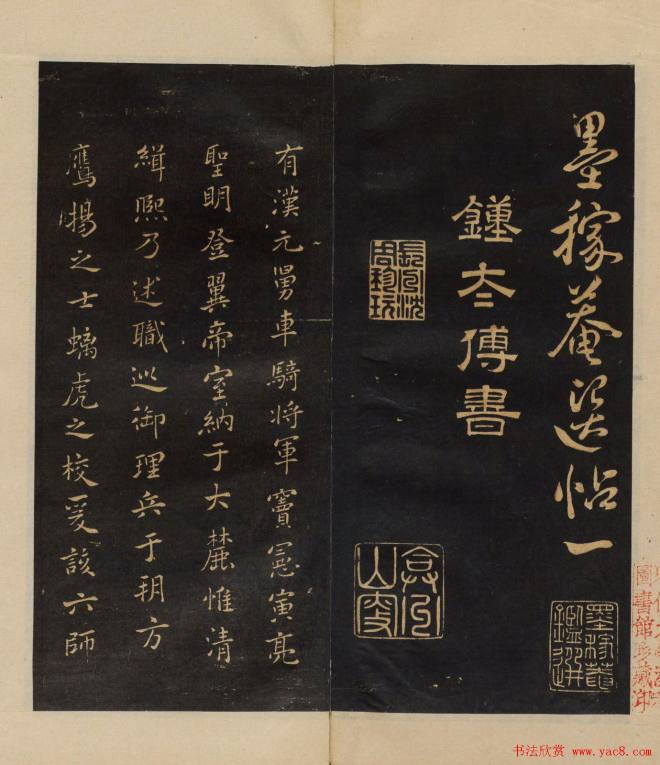 墨稼菴選帖一
鍾太傅書
墨稼菴
鑑選
有漢元舅車騎將軍竇憲寅亮
聖明登翼帝室納于大麓惟清
緝熙乃述職巡御理兵于朔方
鷹揚之士螭虎之校爰該六師
圖書館珍藏印
书法欣赏 www.yac8.com